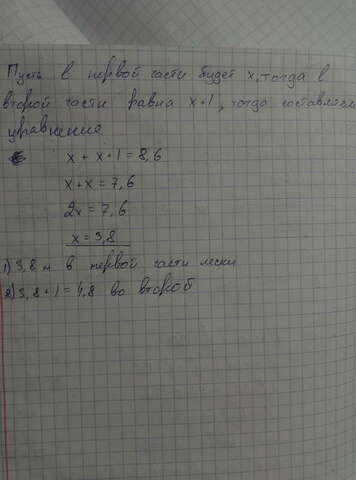 Пусть в первой части будет x, тогда в
второй части равна x+1, тогда составляем
уравнение
x + x+1 = 8,6
x+x = 7,6
2x = 7,6
x = 3,8
1) 3,8 м в первой части лески
2) 3,8 + 1 = 4,8 во второй